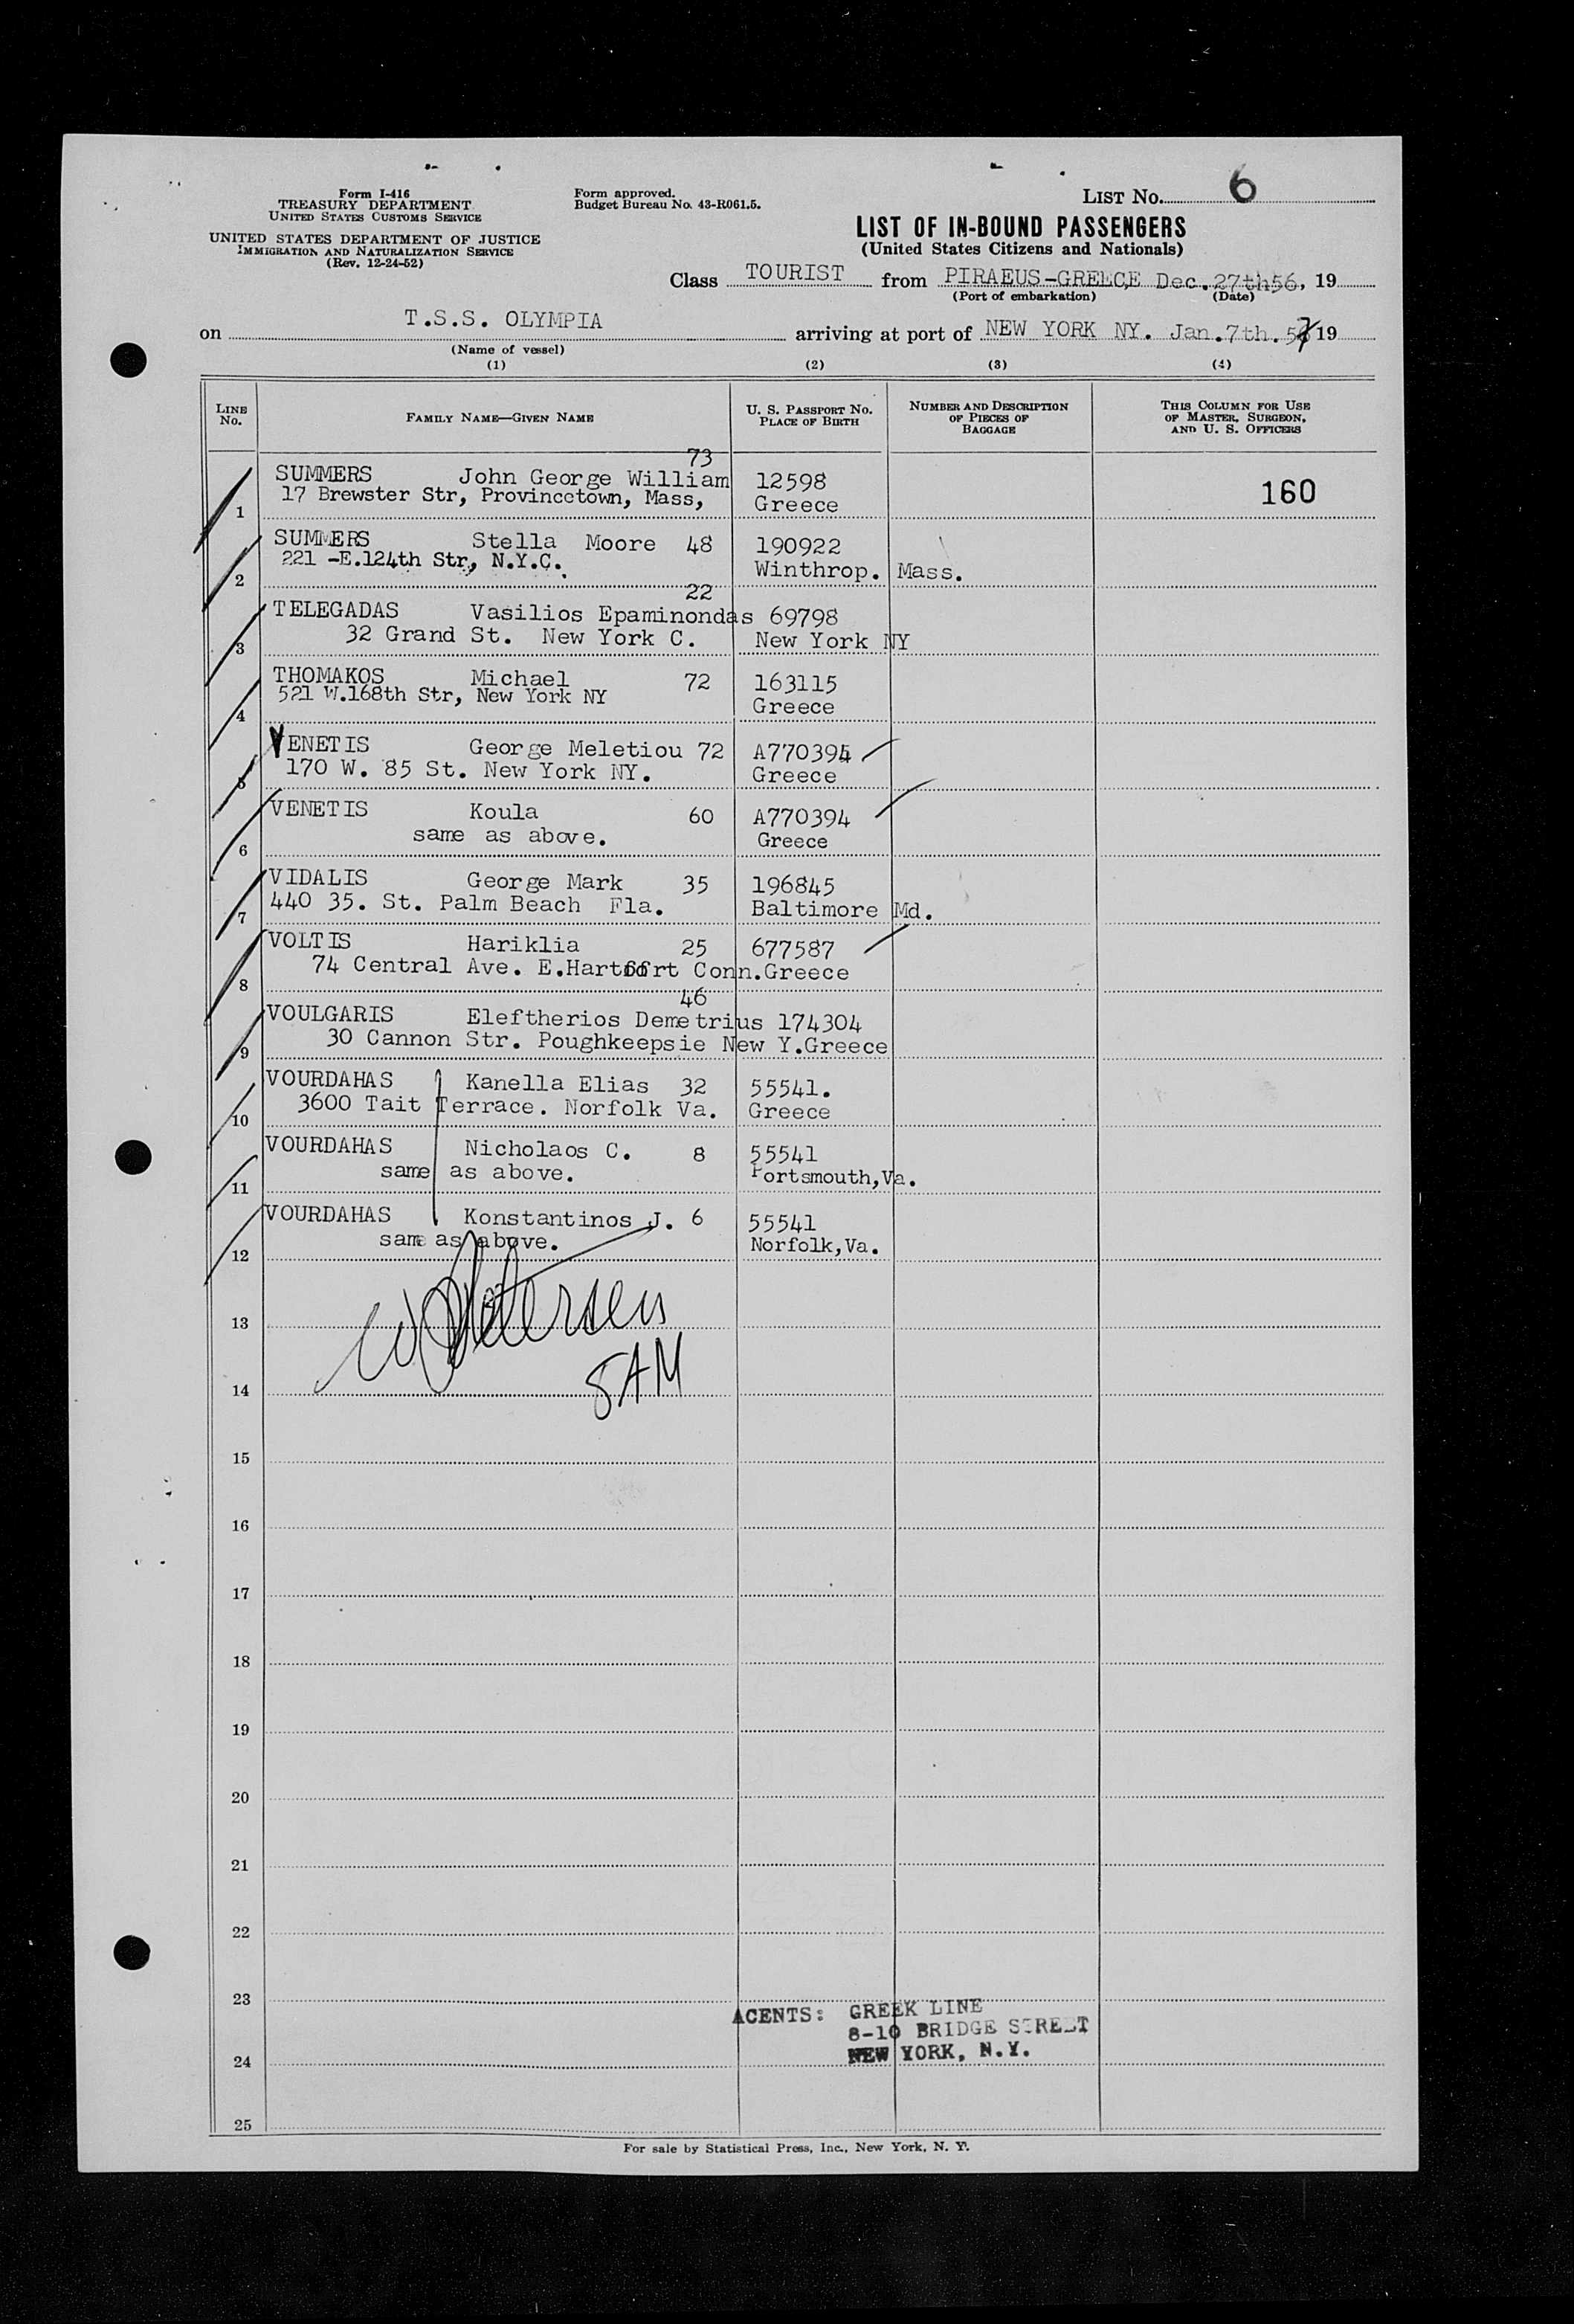 Form I-416
TREASURY DEPARTMENT
UNITED STATES CUSTOMS SERVICE
UNITED STATES DEPARTMENT OF JUSTICE
IMMIGRATION AND NATURALIZATION SERVICE
(Rev. 12-24-52)
Form approved.
Budget Bureau No. 43-R061.5.
LIST NO. 6
LIST OF IN-BOUND PASSENGERS
(United States Citizens and Nationals)
Class TOURIST from PIRAEUS-GREECE Dec.27th56, 19
(Port of embarkation) (Date)
on T.S.S. OLYMPIA arriving at port of NEW YORK NY. Jan.7th.57 19
(Name of vessel)
(1) (2) (3) (4)
LINE NO. FAMILY NAME—GIVEN NAME U. S. PASSPORT NO. PLACE OF BIRTH NUMBER AND DESCRIPTION OF PIECES OF BAGGAGE THIS COLUMN FOR USE OF MASTER, SURGEON, AND U. S. OFFICERS
73
SUMMERS John George William 12598 160
1 17 Brewster Str, Provincetown, Mass, Greece
SUMMERS Stella Moore 48 190922
2 221 -E.124th Str, N.Y.C. Winthrop. Mass.
22
TELEGADAS Vasilios Epaminondas 69798
3 32 Grand St. New York C. New York NY
THOMAKOS Michael 72 163115
4 521 W.168th Str, New York NY Greece
VENETIS George Meletiou 72 A770394
5 170 W. 85 St. New York NY. Greece
VENETIS Koula 60 A770394
6 same as above. Greece
VIDALIS George Mark 35 196845
7 440 35. St. Palm Beach Fla. Baltimore Md.
VOLTIS Hariklia 25 677587
8 74 Central Ave. E.Hartffrt Conn.Greece
46
VOULGARIS Eleftherios Demetrius 174304
9 30 Cannon Str. Poughkeepsie New Y.Greece
VOURDAHAS Kanella Elias 32 55541.
10 3600 Tait Terrace. Norfolk Va. Greece
VOURDAHAS Nicholaos C. 8 55541
11 same as above. Portsmouth,Va.
VOURDAHAS Konstantinos J. 6 55541
12 same as above. Norfolk,Va.
13
14
15
16
17
18
19
20
21
22
23
AGENTS: GREEK LINE
8-10 BRIDGE STREET
24 NEW YORK, N.Y.
25
For sale by Statistical Press, Inc., New York, N. Y.